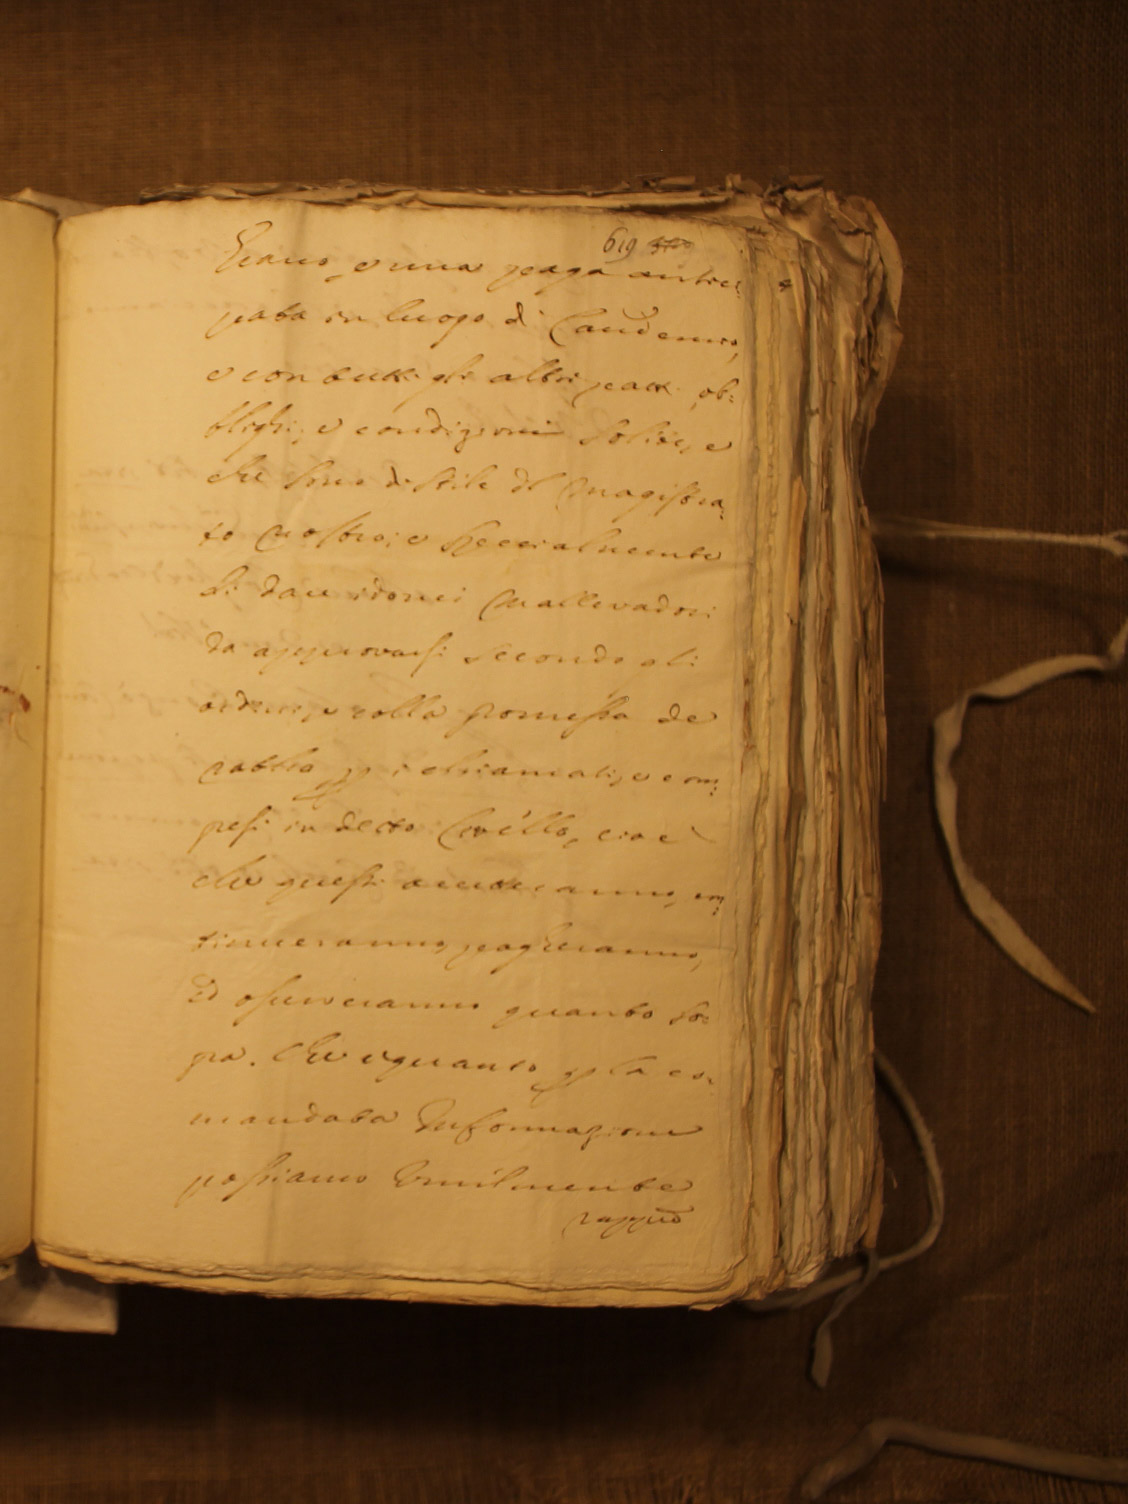 619
Erario, e una paga antici:
pata in luogo di Laudemio,
e con tutti gli altri patti, ob:
blighi, e condizioni solite, e
che sono di stile del Magistra:
to Nostro, e specialmente
di dare idonei Mallevadori
da approvarsi secondo gli
ordini, e colla promessa de
rabbia pp i chiamati, e com:
presi in detto Livello, cioè
che questi accetteranno, con:
tinueranno, pagheranno,
ed osserveranno quanto so:
pra. Che è quanto pp la co:
mandata Informazione
possiamo Umilmente
rappres